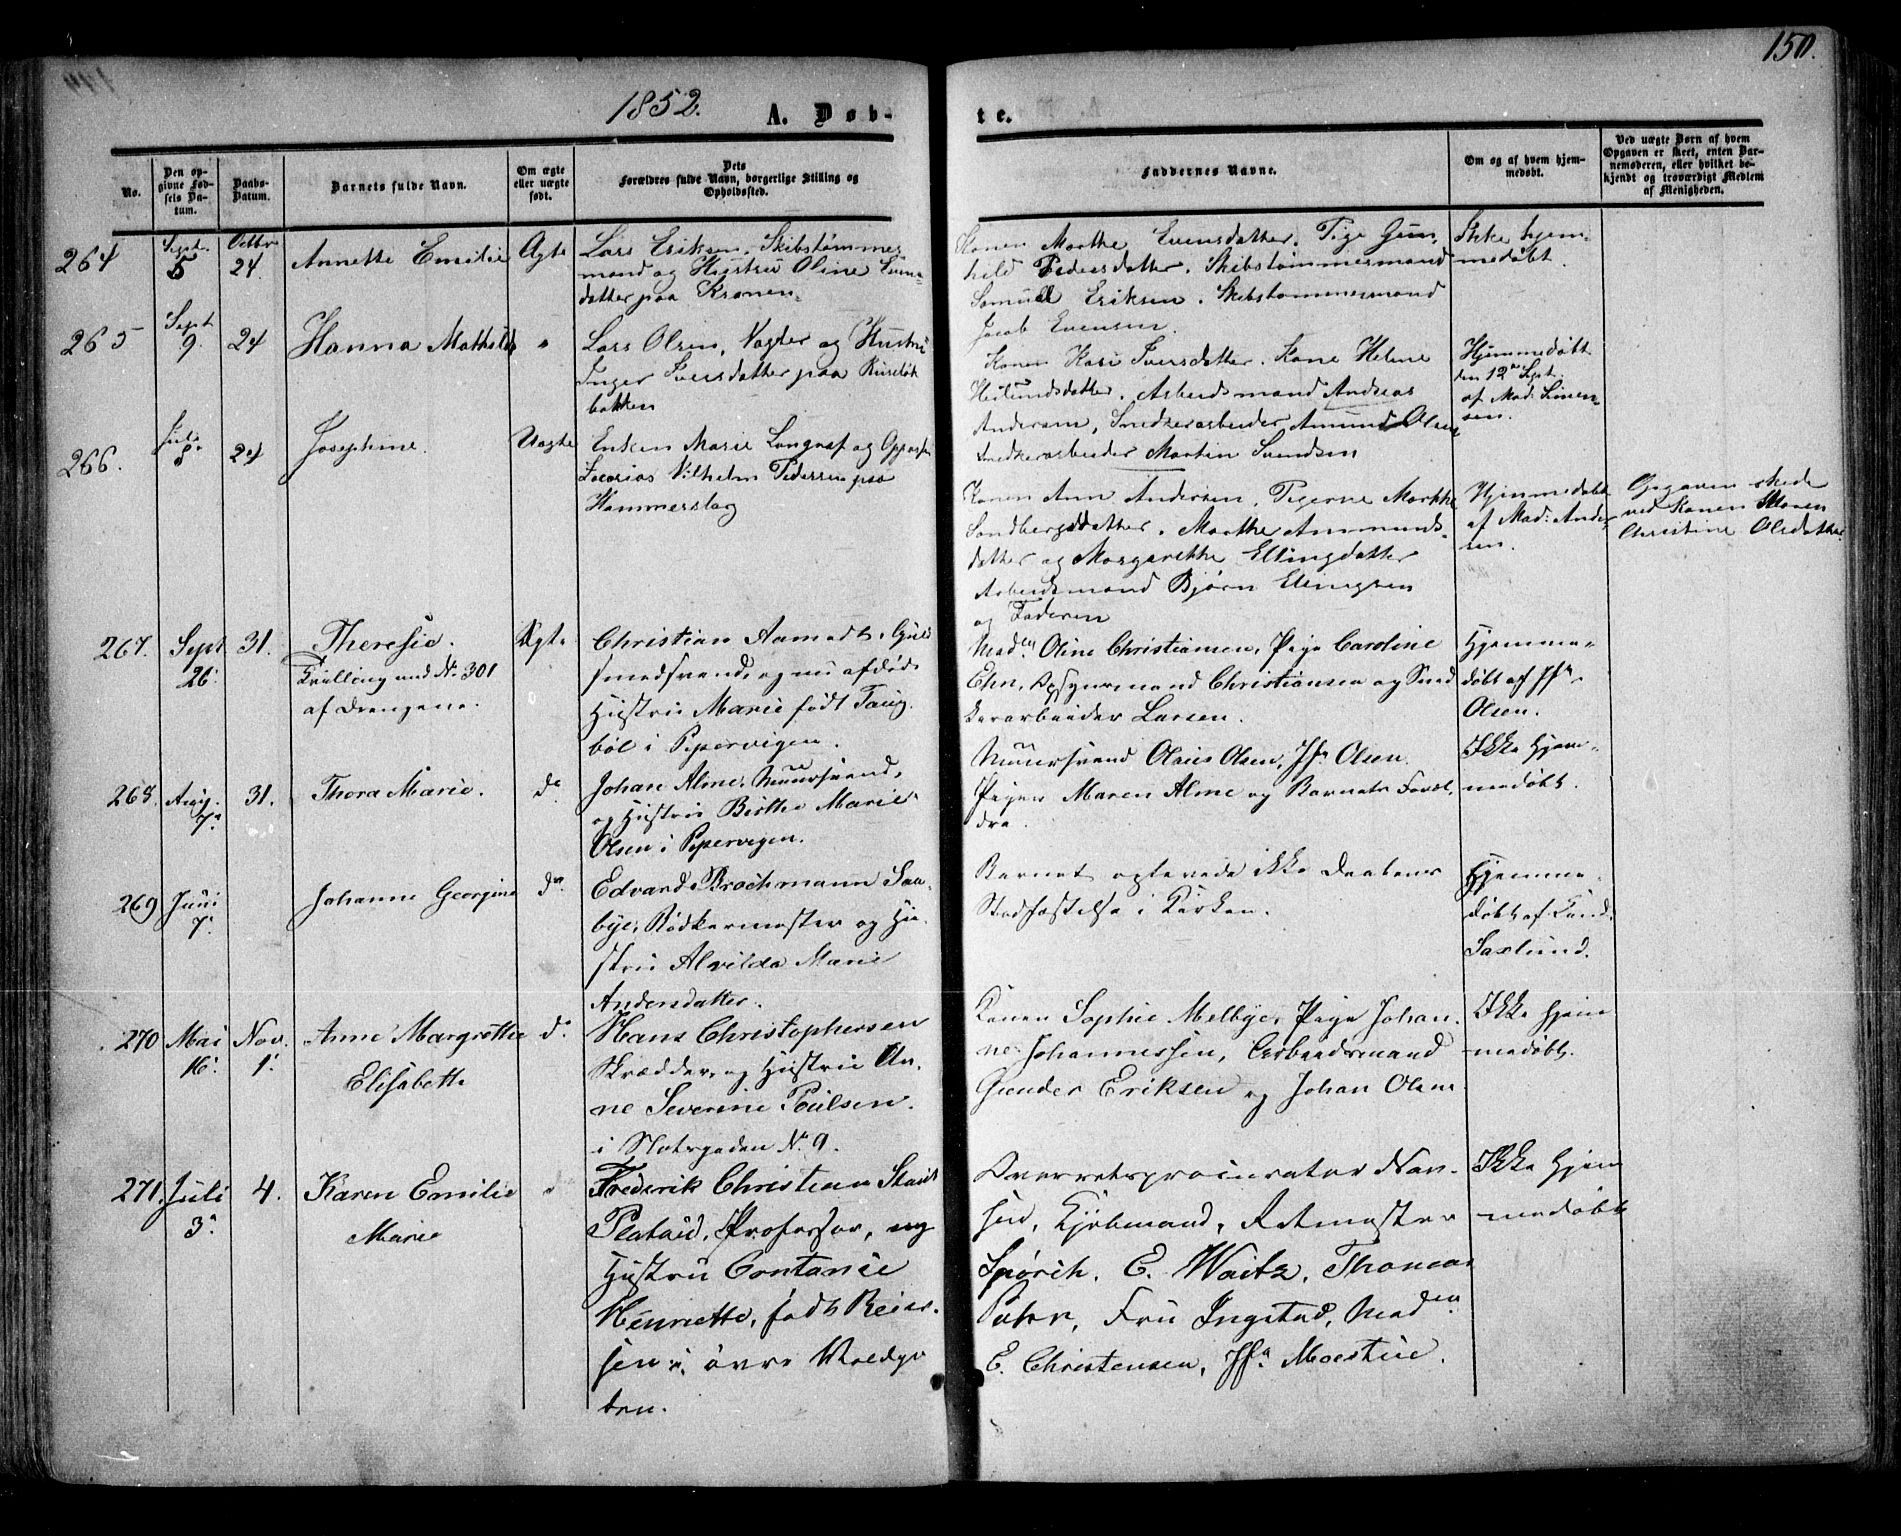 150.
1852.
A. Døb-
te.
No.
Den op-
givne Fød-
sels Da-
tum.
Daabs-
Datum.
Barnets fulde Navn.
Om ægte
eller uægte
født.
Dets
Forældres fulde Navn, borgerlige Stilling og
Opholdssted.
Faddernes Navne.
Om og af hvem hjem-
medøbt.
Ved uægte Børn af hvem
Opgaven er skeet, enten Bar-
nemoderen, eller hvilket be-
kjendt og troværdigt Medlem
af Menigheden.
264
Sept.
5
Octbr
24.
Annette Emilie
Ægte
Lars Eriksen, Skibstømmer
mand og Hustru Oline Evens
datter paa Kranen
Konen Marthe Evensdatter. Pige Gun
hild Pedersdatter. Skibstømmermand
Samuel Eriksen. Skibstømmermand
Jacob Evensen.
Ikke hjem-
medøbt.
265
Sept
9.
24
Hanna Mathilde
"
Lars Olsen, Vægter og Hustru
Inger Iversdatter paa Ruseløk
bakken
Konen Kari Iversdatter. Kone Helene
Heilundsdatter. Arbeidsmand Andreas
Andersen, Snedkerarbeider Amund Olsen
Snedkerarbeider Martin Svendsen
Hjemmedøbt
den 12te Sept.
af Mad. Simen-
sen.
266.
Juli
8.
24
Josephine.
Uægte
Enken Marie Langraf og
Zacarias Vilhelm Pedersen paa
Hammerslag
Konen Ann Andersen, Pigerne Marthe
Sandbergsdatter. Marthe Ammunds-
datter og Margarethe Ellingdatter
Arbeidsmand Bjørn Ellingsen
og Faderen
Hjemmedøbt
af Mad: Ander
sen.
Opgaven skede
ved Konen Maren
Christine Olsdatter
267.
Sept
26.
31.
Theresie.
Tvilling med No 301
af Drengene.
Ægte
Christian Aamodt, Guld
smedsvend, og nu afdøde
Hustru Marie født Taug-
bøl i Pipervigen.
Maden Oline Christiansen, Pige Caroline
Ehn, Opsynsmand Christiansen og Sned
kerarbeider Larsen.
Hjemme-
døbt af Jfr
Olsen.
268.
Aug.
7.
31.
Thora Marie.
do
Johan Alme, Muursvend,
og Hustru Birthe Marie
Olsen i Pipervigen.
Muursvend Olaus Olsen, Jfr Olsen.
Pigen Maren Alme og Barnets Foræl-
dre.
Ikke Hjem-
medøbt.
269
Juni
7.
Johanne Georgine
do
Edvard Brochmann Saa-
bye, Bødkermester og Hu-
stru Alvilda Marie
Andersdatter.
Barnet oplevede ikke Daabens
Stadfæstelse i Kirken.
Hjemme-
døbt af Cand.
Saxlund.
270
Mai
16.
Nov.
1.
Anne Margrethe
Elisabeth
do
Hans Christophersen
Skrædder, og Hustru An-
ne Severine Poulsen.
i Slotsgaden No 9.
Konen Sophie Melbye, Pige Johan
ne Johannessen, Arbeidsmand
Gunder Eriksen og Johan Olsen
Ikke Hjem
medøbt.
271.
Juli
3.
4.
Karen Emilie
Marie
Frederik Christian Stoud
Platoud, Professor, og
Hustru Constance
Henriette, født Reier-
sen i øvre Voldga
den.
Overretsprocurator Nan-
sen, Kjøbmand, Ritmester
Spörck. E. Waitz, Thomas
Fru Ingstad, Maden
E. Christensen, Jfr Moestue.
Ikke Hjem
medøbt